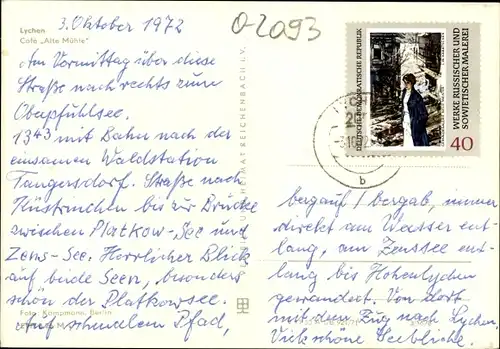 Lychen
Café „Alte Mühle"
3. Oktober 1972
O-2093
Am Vormittag über diese
Straße nach rechts zum
Oberpfuhlsee.
13⁴³ mit Bahn nach der
einsamen Waldstation
Tangersdorf. Straße nach
Küstrinchen bis zur Brücke
zwischen Platkow-See und
Zens-See. Herrlicher Blick
auf beide Seen, besonders
schön der Platkowsee.
Foto: Kampmann, Berlin
Auf schmalem Pfad,
REICHENBACH I. V.
DEUTSCHE DEMOKRATISCHE REPUBLIK
WERKE RUSSISCHER UND
SOWJETISCHER MALEREI
40
b
bergauf/bergab, immer
direkt am Wasser ent-
lang, am Zenssee ent-
lang bis Hohenlychen
gewandert. Von dort
mit dem Zug nach Lychen.
Viele schöne Seeblicke.